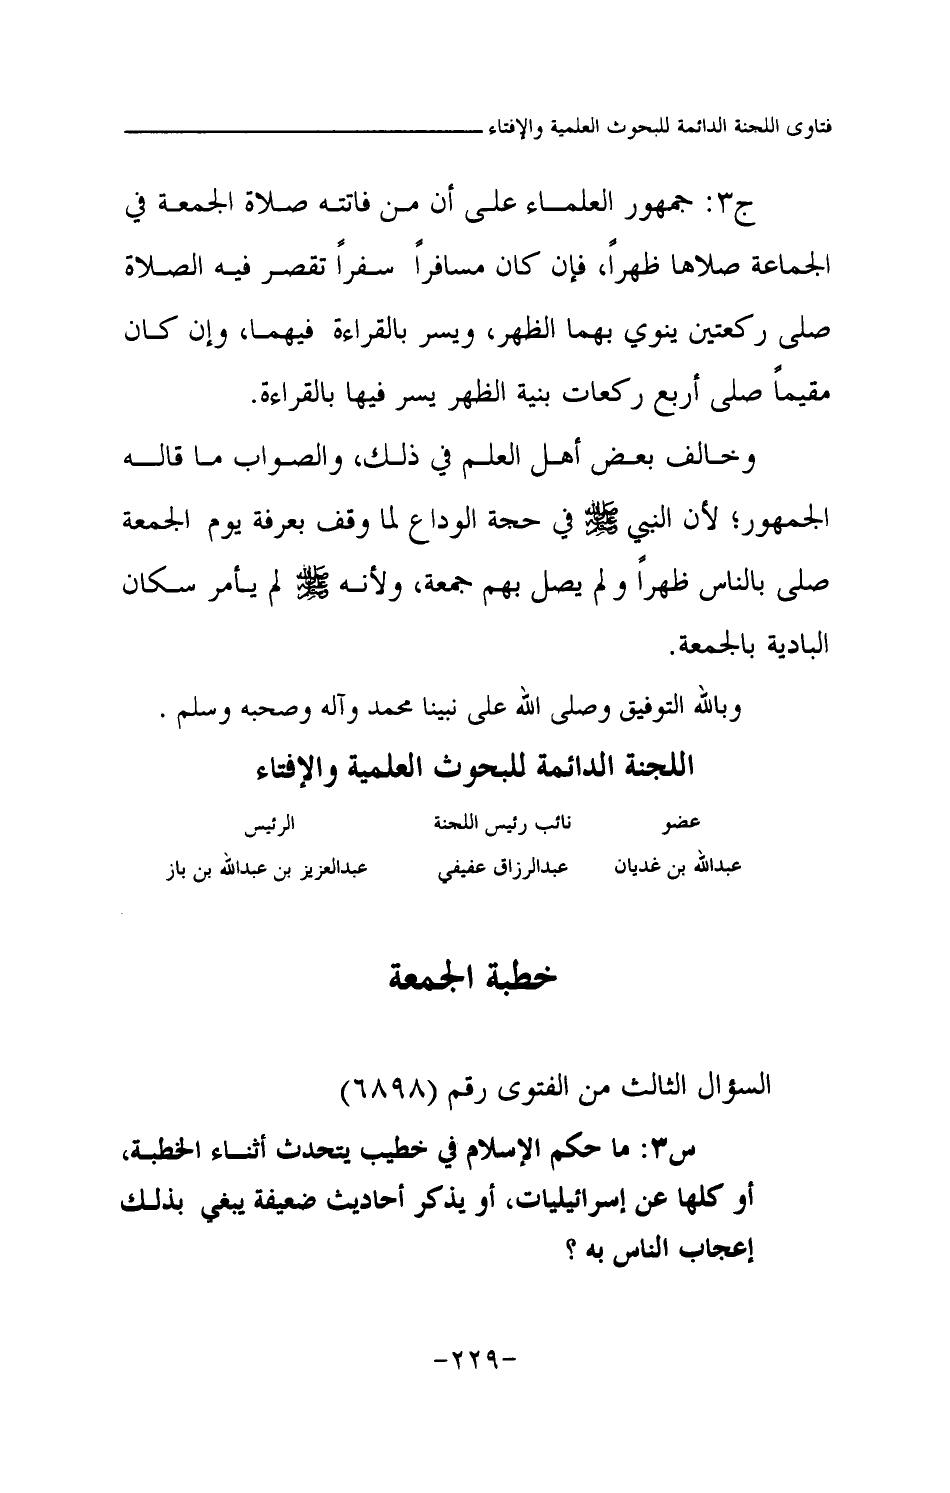 فتاوى اللجنة الدائمة للبحوث العلمية والإفتاء
ج٣: جمهور العلماء على أن من فاتته صلاة الجمعة في
الجماعة صلاها ظهراً، فإن كان مسافراً سفراً تقصر فيه الصلاة
صلى ركعتين ينوي بهما الظهر، ويسر بالقراءة فيهما، وإن كان
مقيماً صلى أربع ركعات بنية الظهر يسر فيها بالقراءة.
وخالف بعض أهل العلم في ذلك، والصواب ما قاله
الجمهور؛ لأن النبي ﷺ في حجة الوداع لما وقف بعرفة يوم الجمعة
صلى بالناس ظهراً ولم يصل بهم جمعة، ولأنه ﷺ لم يأمر سكان
البادية بالجمعة.
وبالله التوفيق وصلى الله على نبينا محمد وآله وصحبه وسلم .
اللجنة الدائمة للبحوث العلمية والإفتاء
عضو نائب رئيس اللجنة الرئيس
عبدالله بن غديان عبدالرزاق عفيفي عبدالعزيز بن عبدالله بن باز
خطبة الجمعة
السؤال الثالث من الفتوى رقم (٦٨٩٨)
س٣: ما حكم الإسلام في خطيب يتحدث أثناء الخطبة،
أو كلها عن إسرائيليات، أو يذكر أحاديث ضعيفة يبغي بذلك
إعجاب الناس به ؟
-٢٢٩-